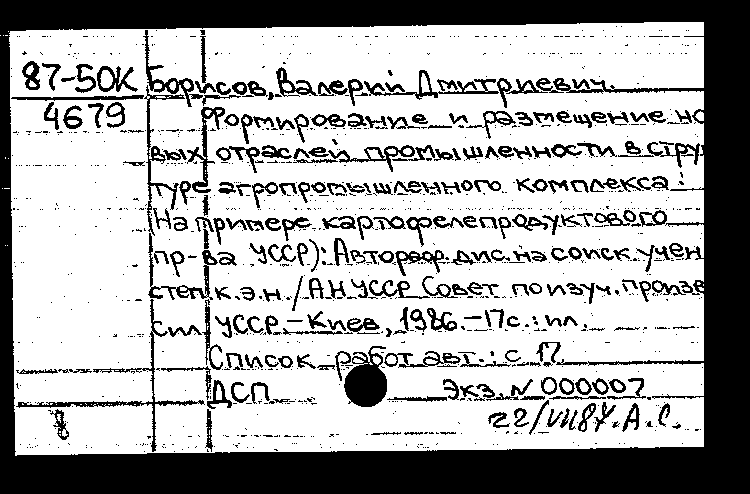 87-50К Борисов, Валерий Дмитриевич.
4679 Формирование и размещение но
вых отраслей промышленности в стру
туре агропромышленного комплекса:
(На примере картофелепродуктового
пр-ва УССР): Автореф. дис. на соиск. учен
степ. к.э.н. / АН УССР Совет по изуч. произв
сил УССР. - Киев, 1986. - 17 с.: ил.
Список работ авт.: с 17.
ДСП Экз. N 000007
22/VII87. А.С.